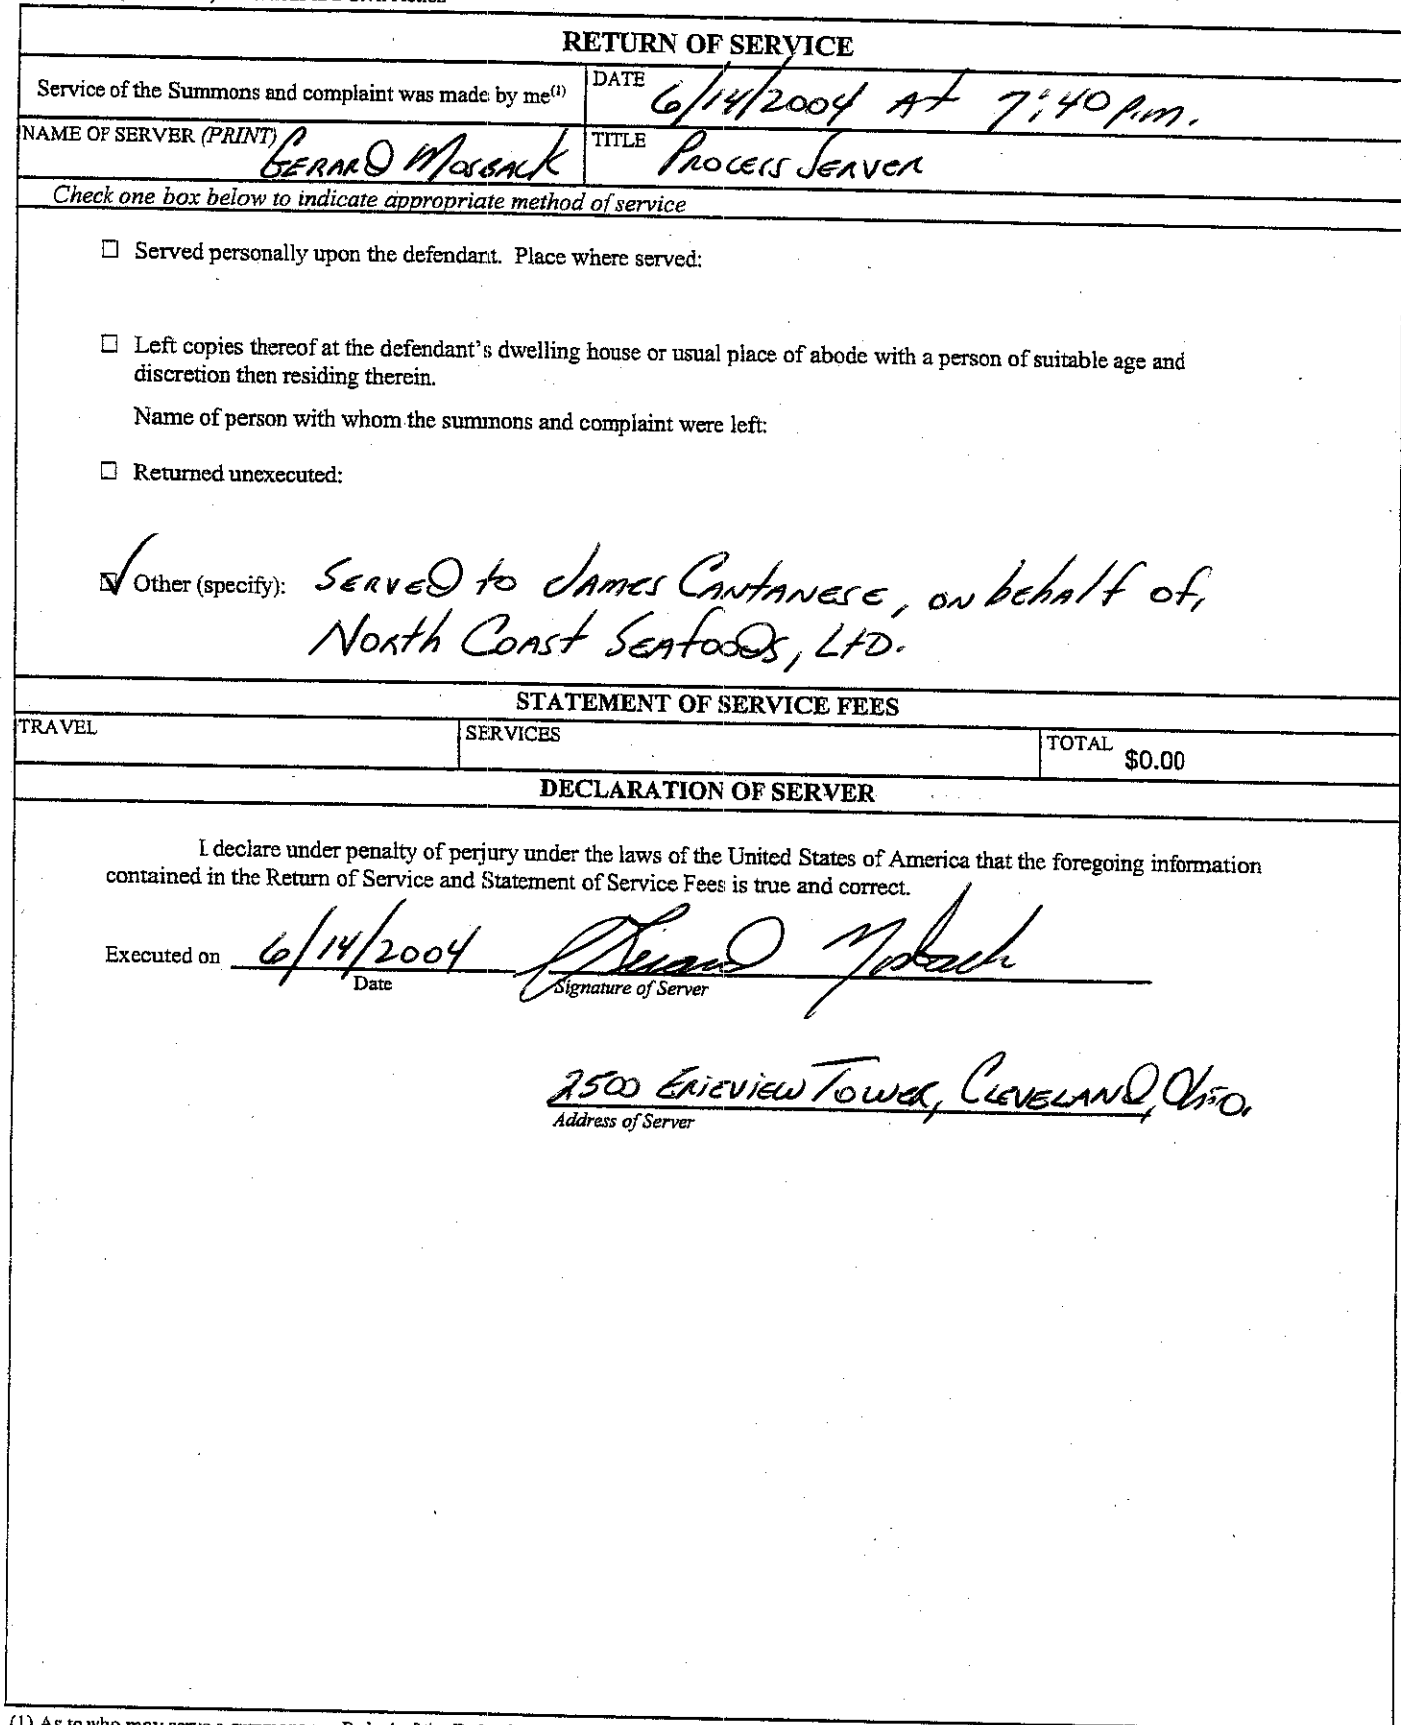 RETURN OF SERVICE
Service of the Summons and complaint was made by me(1)
DATE 6/14/2004 At 7:40 p.m.
NAME OF SERVER (PRINT) GERARD MOSBACK
TITLE PROCESS SERVER
Check one box below to indicate appropriate method of service
☐ Served personally upon the defendant. Place where served:
☐ Left copies thereof at the defendant's dwelling house or usual place of abode with a person of suitable age and
discretion then residing therein.
Name of person with whom the summons and complaint were left:
☐ Returned unexecuted:
☑ Other (specify): SERVED to JAMES CANTANESE, ON behAlf of,
NORth COASt SEAfooDs, LtD.
STATEMENT OF SERVICE FEES
TRAVEL
SERVICES
TOTAL $0.00
DECLARATION OF SERVER
I declare under penalty of perjury under the laws of the United States of America that the foregoing information
contained in the Return of Service and Statement of Service Fees is true and correct.
Executed on 6/14/2004 Gerard Mosback
Date Signature of Server
2500 ERIEVIEW TOWER, CLEVELAND, Ohio.
Address of Server
(1) As to who may serve a summons